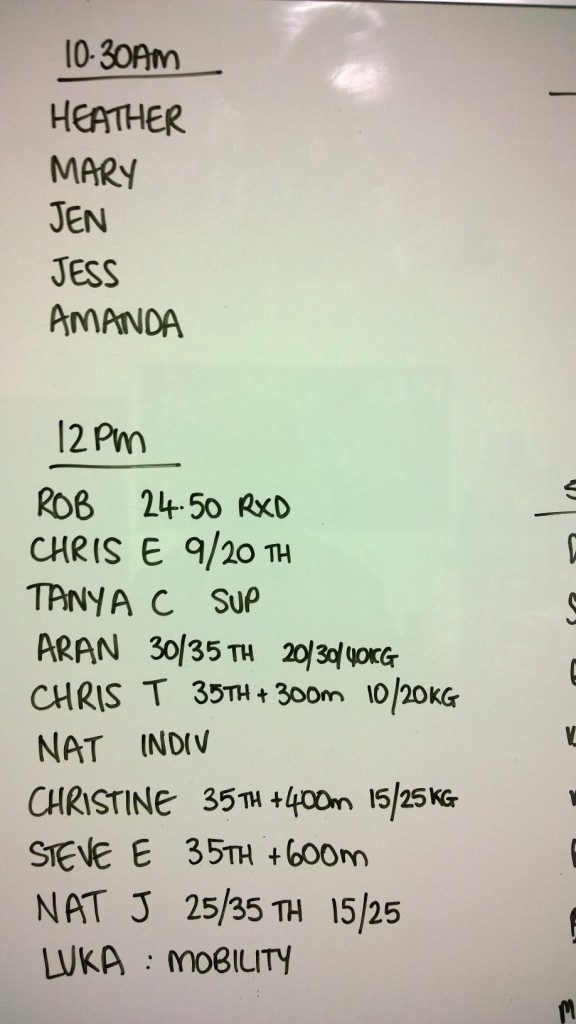 10.30AM
HEATHER
MARY
JEN
JESS
AMANDA
12 PM
ROB 24.50 RXD
CHRIS E 9/20 TH
TANYA C SUP
ARAN 30/35 TH 20/30/40KG
CHRIS T 35TH + 300m 10/20KG
NAT INDIV
CHRISTINE 35TH + 400m 15/25KG
STEVE E 35TH + 600m
NAT J 25/35 TH 15/25
LUKA : MOBILITY